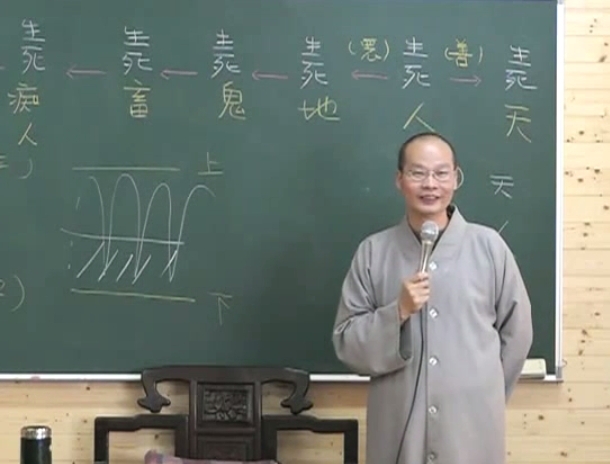 生死 生死 生死 生死 (惡) 生死 (善) 生死
痴人 畜 鬼 地 人 天
上 天
下